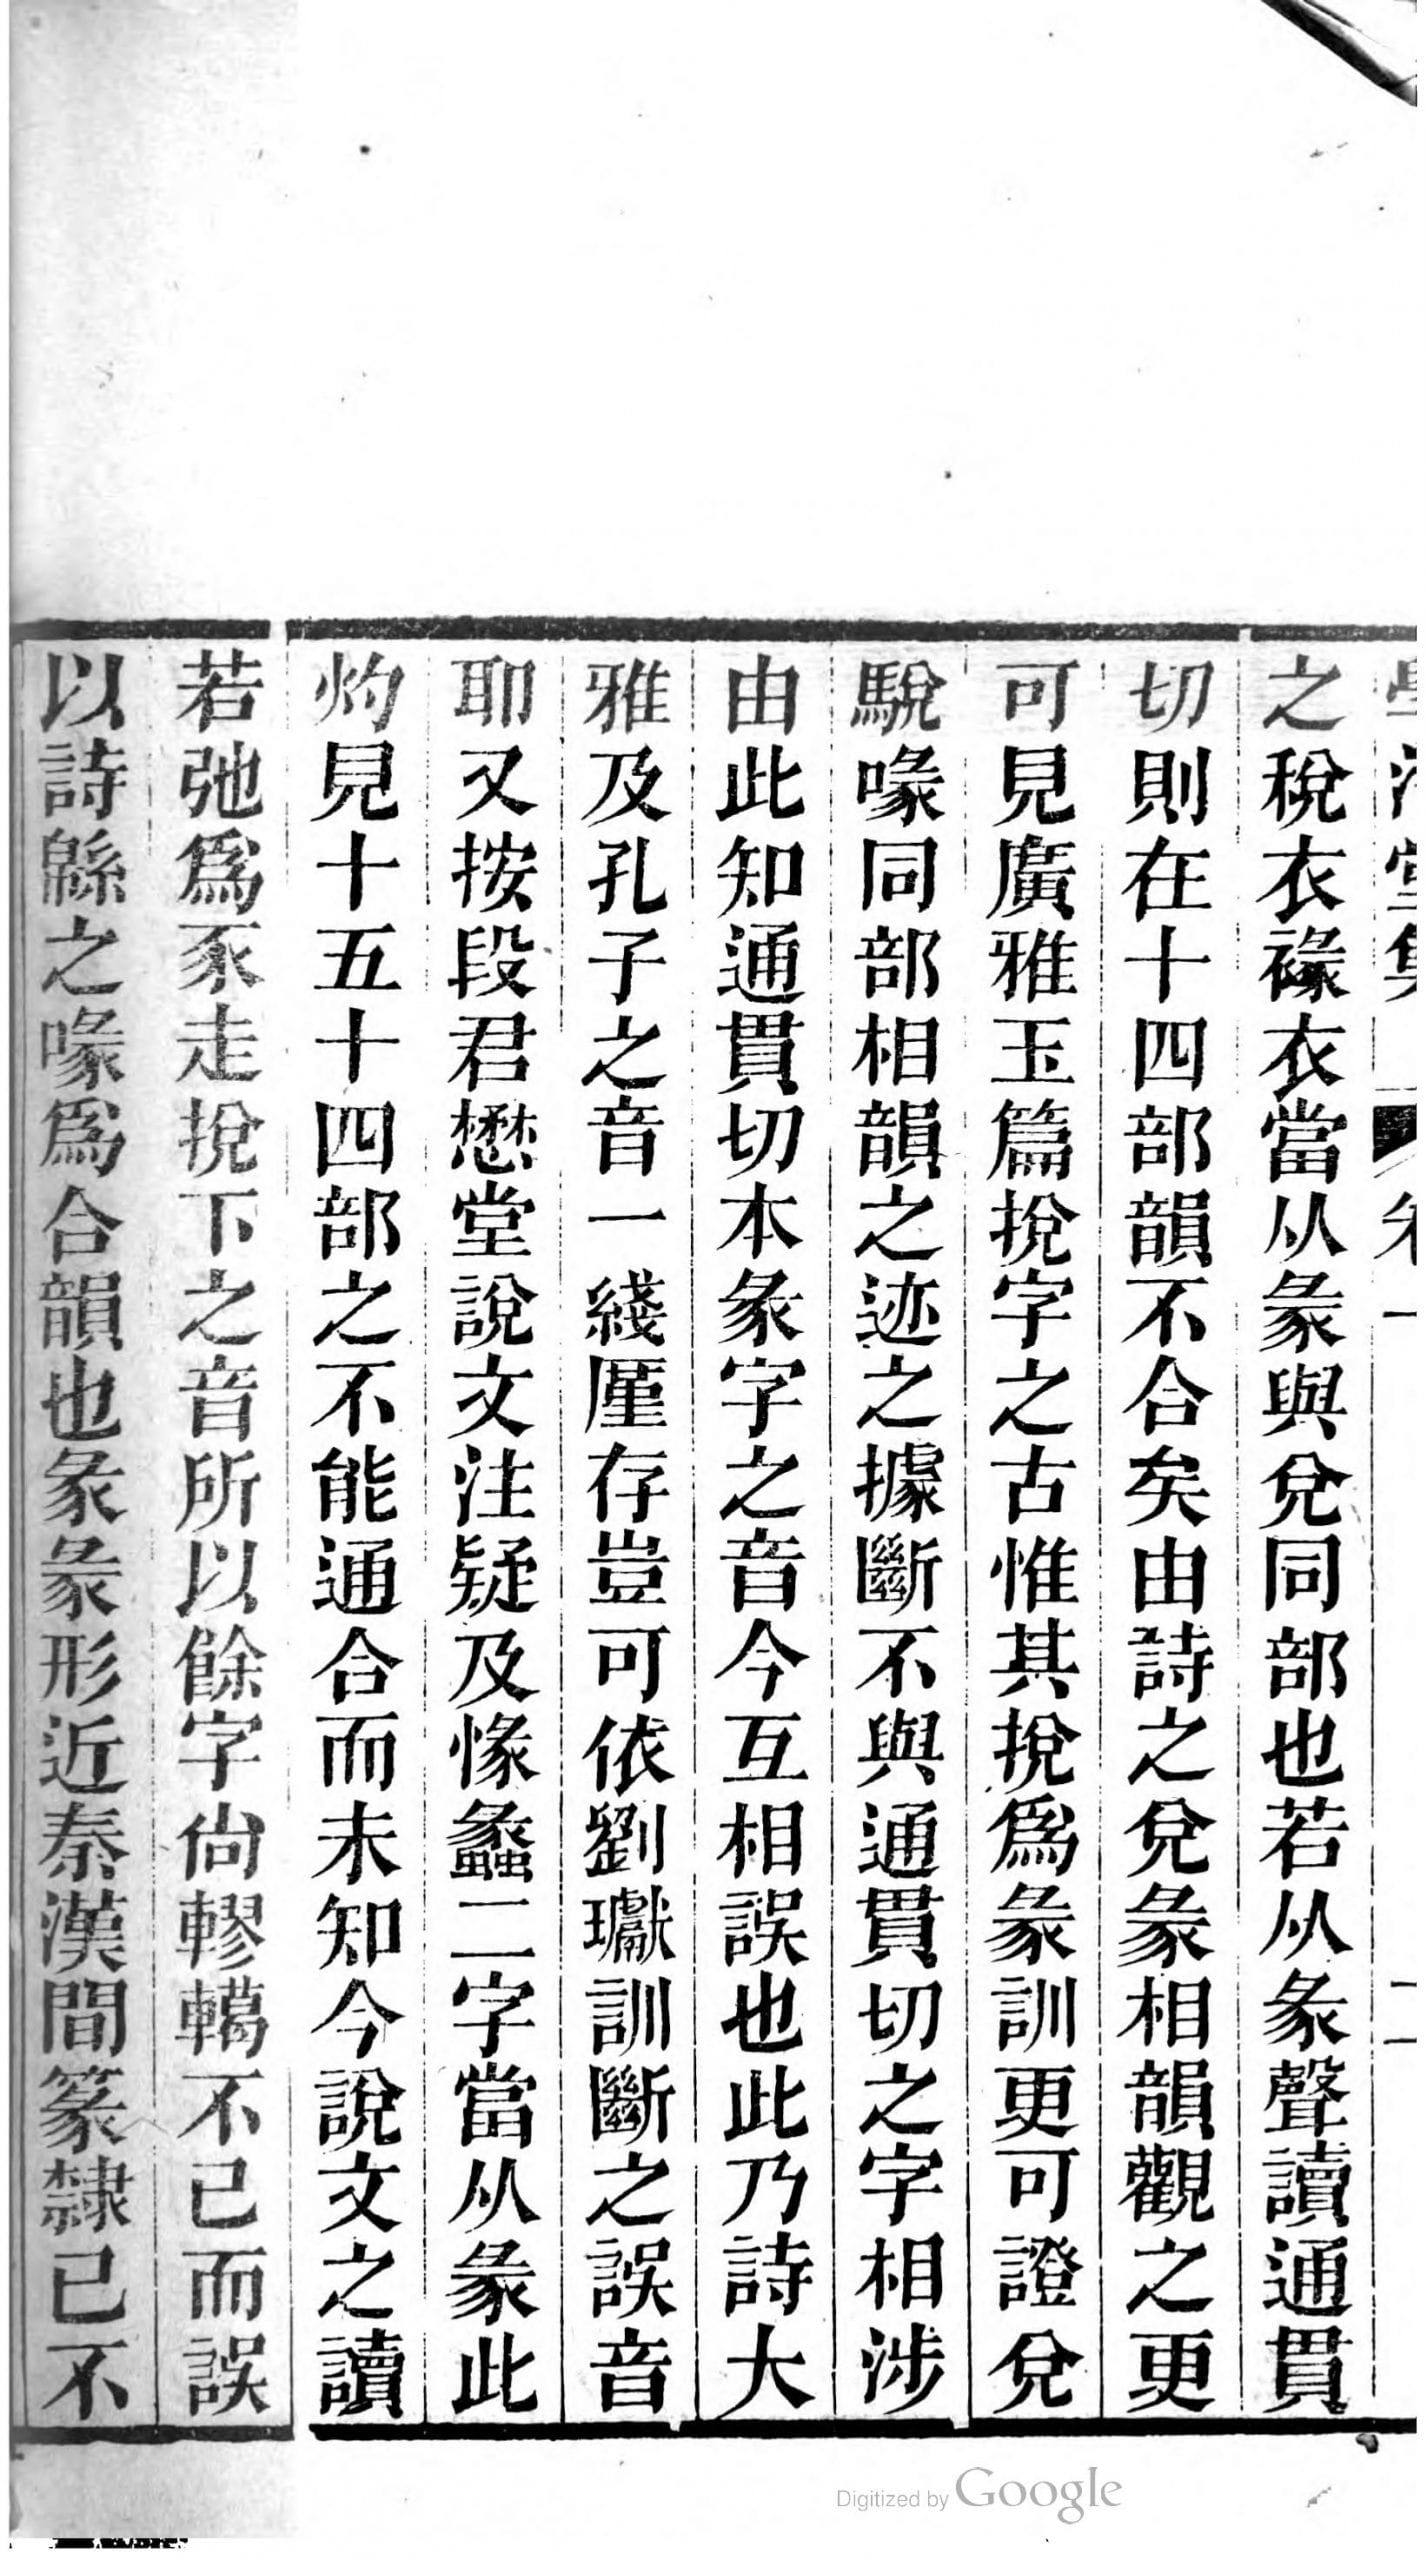 之稅衣褖衣當从彖與兌同部也若从彖聲讀通貫
切則在十四部韻不合矣由詩之兌彖相韻觀之更
可見廣雅玉篇挩字之古惟其挩爲彖訓更可證兌
駾喙同部相韻之迹之據斷不與通貫切之字相涉
由此知通貫切本彖字之音今互相誤也此乃詩大
雅及孔子之音一綫厪存豈可依劉瓛訓斷之誤音
耶又按段君懋堂說文注疑及惾蠡二字當从彖此
灼見十五十四部之不能通合而未知今說文之讀
若弛爲豕走挩下之音所以餘字尙轇轕不已而誤
以詩緜之喙爲合韻也彖彖形近秦漢間篆隸已不
Digitized by Google